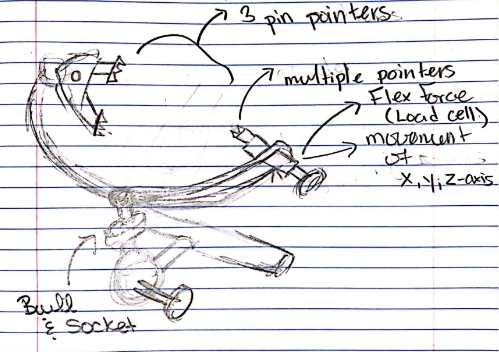 3 pin pointers
multiple pointers
Flex Force
(Load cell)
movement
of
x, y, z-axis
Ball
& Socket